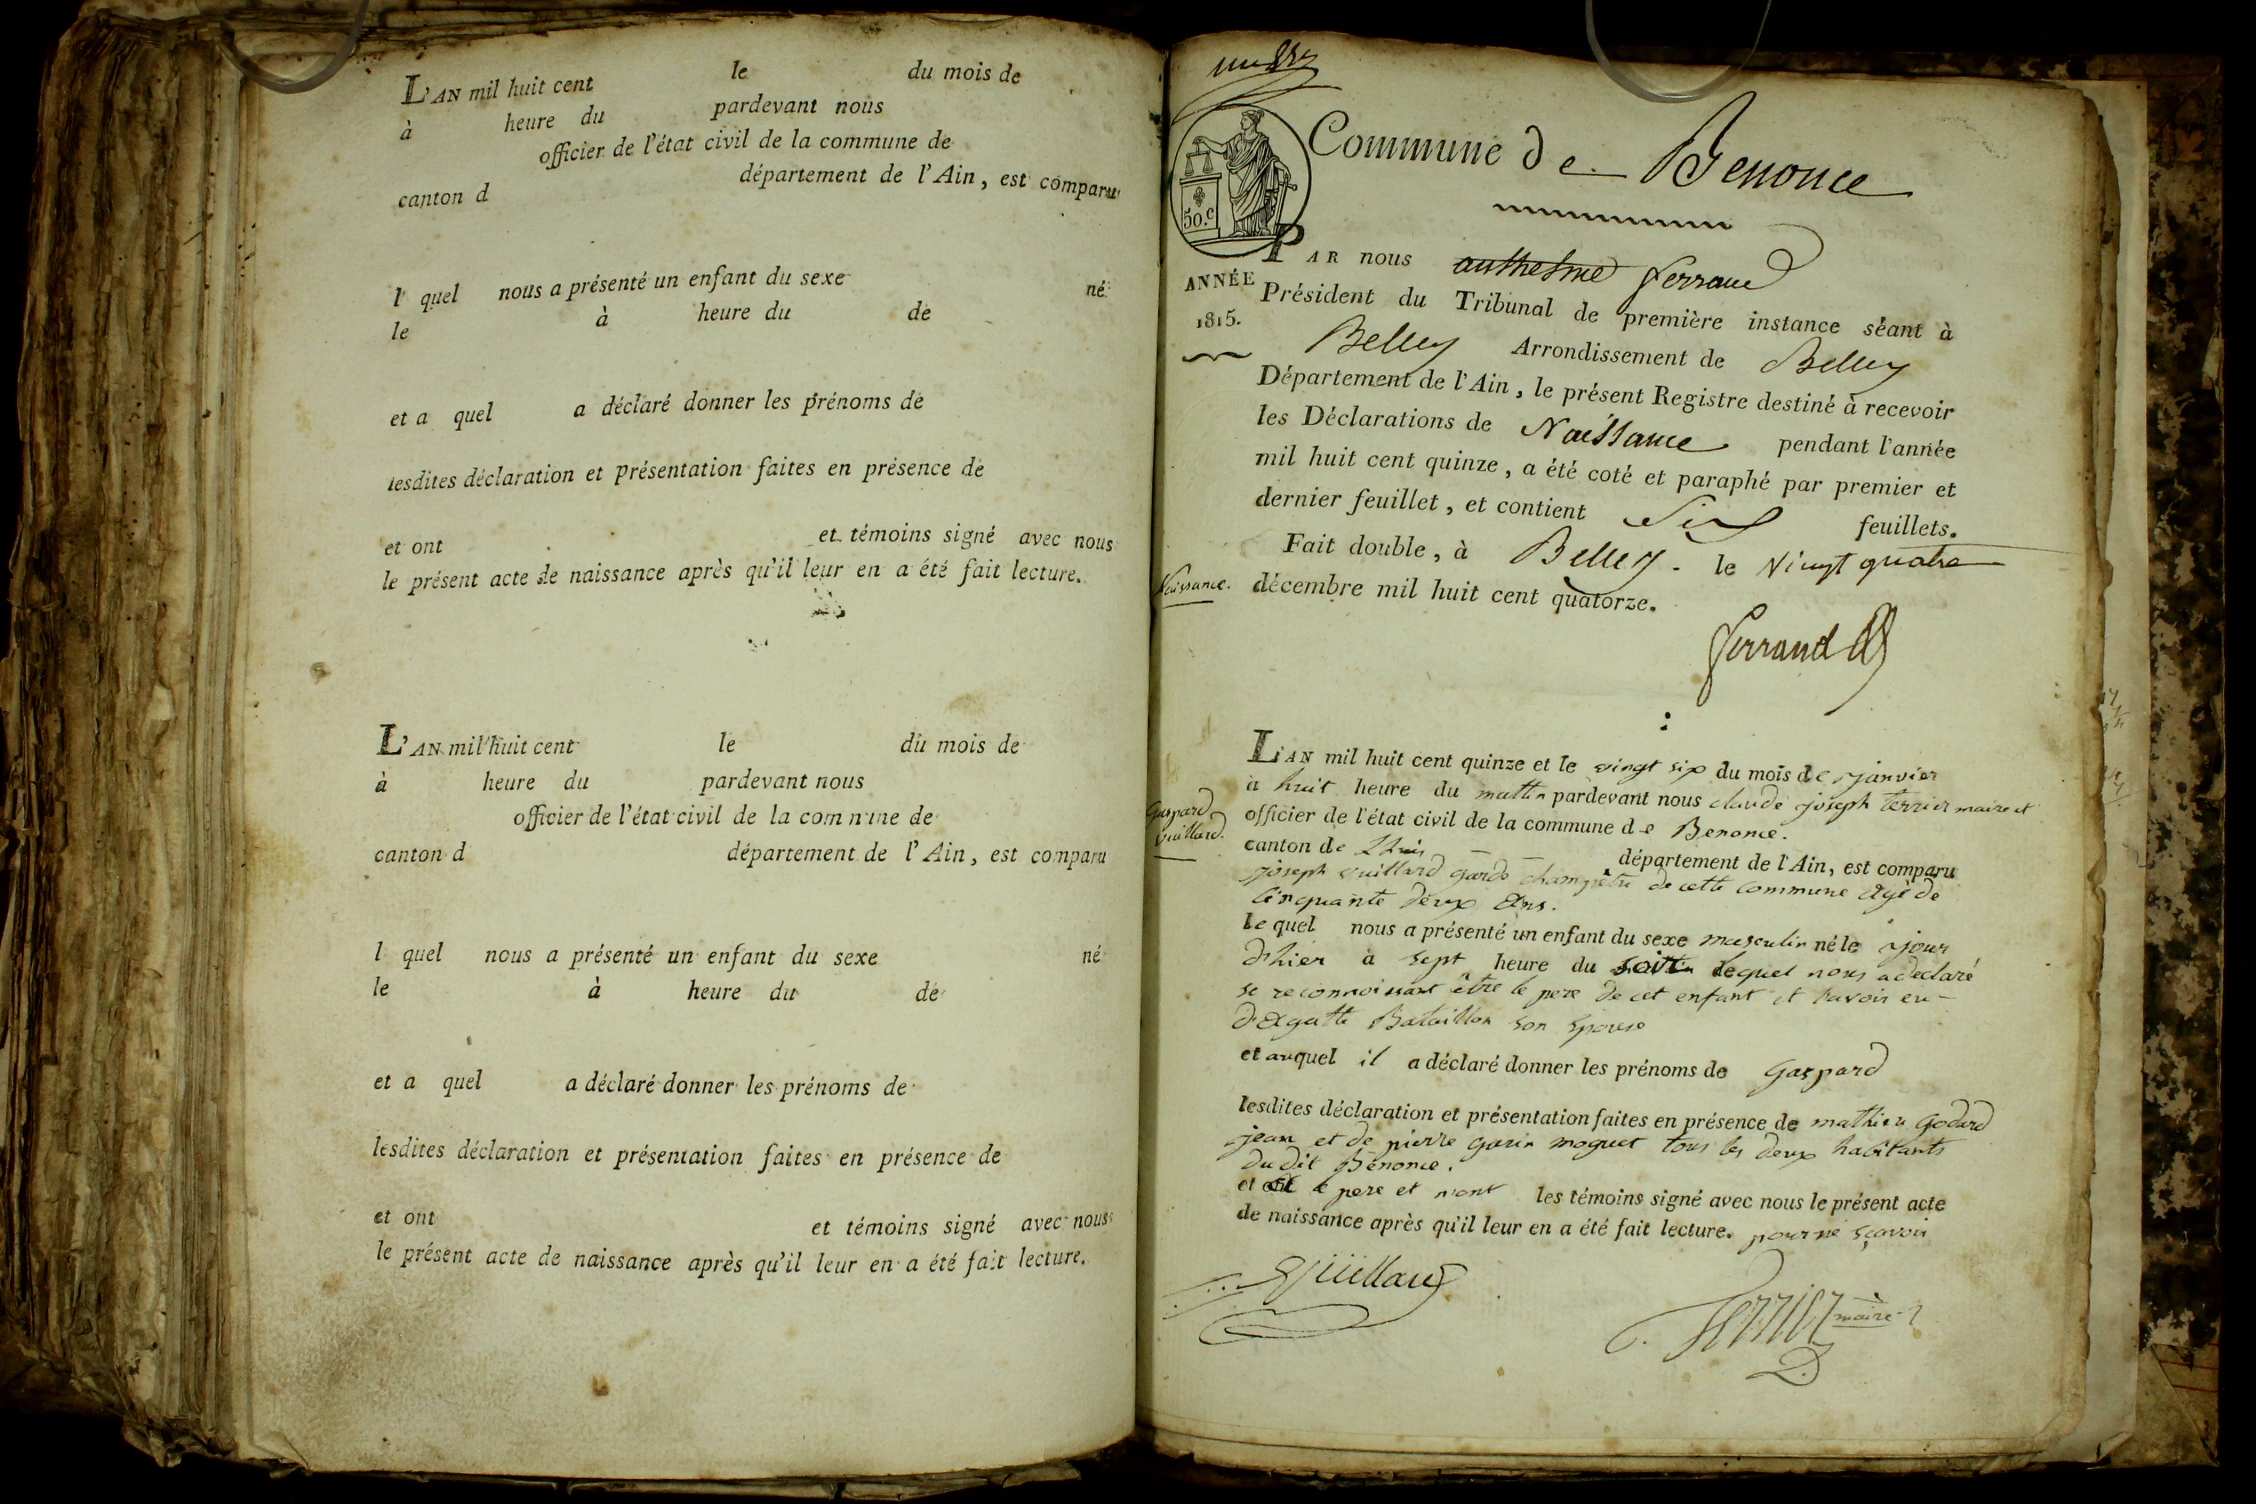 L'AN mil huit cent le du mois de
à heure du pardevant nous
officier de l'état civil de la commune de
canton d département de l'Ain, est comparu
l quel nous a présenté un enfant du sexe né
le à heure du de
et a quel a déclaré donner les prénoms de
lesdites déclaration et présentation faites en présence de
et ont et témoins signé avec nous
le présent acte de naissance après qu'il leur en a été fait lecture.
L'AN mil huit cent le du mois de
à heure du pardevant nous
officier de l'état civil de la commune de
canton d département de l'Ain, est comparu
l quel nous a présenté un enfant du sexe né
le à heure du de
et a quel a déclaré donner les prénoms de
lesdites déclaration et présentation faites en présence de
et ont et témoins signé avec nous
le présent acte de naissance après qu'il leur en a été fait lecture.
Commune de Benonce
50.c
PAR nous anthesme ferrand
ANNÉE
1815.
Président du Tribunal de première instance séant à
Belley Arrondissement de Belley
Département de l'Ain, le présent Registre destiné à recevoir
les Déclarations de Naissance pendant l'année
mil huit cent quinze, a été coté et paraphé par premier et
dernier feuillet, et contient Six feuillets.
Fait double, à Belley. le Vingt quatre
décembre mil huit cent quatorze.
Naissance.
ferrand
L'AN mil huit cent quinze et le vingt six du mois de janvier
à huit heure du mattin pardevant nous claude joseph terrier maire et
officier de l'état civil de la commune de Benonce.
Gaspard
Vuillard.
canton de Lhuis département de l'Ain, est comparu
joseph vuillard garde champêtre de cette commune agé de
cinquante deux ans.
lequel nous a présenté un enfant du sexe masculin né le jour
d'hier à sept heure du soir lequel nous a declaré
se reconnoissant être le pere de cet enfant et l'avoir eu
d'agatte Bataillon son epouse
et auquel il a déclaré donner les prénoms de gaspard
lesdites déclaration et présentation faites en présence de mathieu godard
jean et de pierre garin moguet tous les deux habitants
du dit Bénonce.
et ont le pere et n'ont les témoins signé avec nous le présent acte
de naissance après qu'il leur en a été fait lecture. pour ne sçavoir
Vuillard
Terrier maire